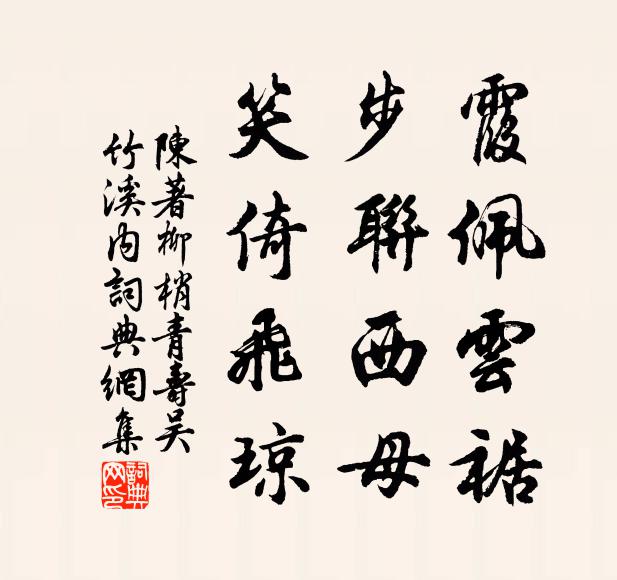 霞佩雲裾
步聯西母
笑倚飛琼
陳著柳梢青壽吳
竹溪内詞典網集
詞典网印